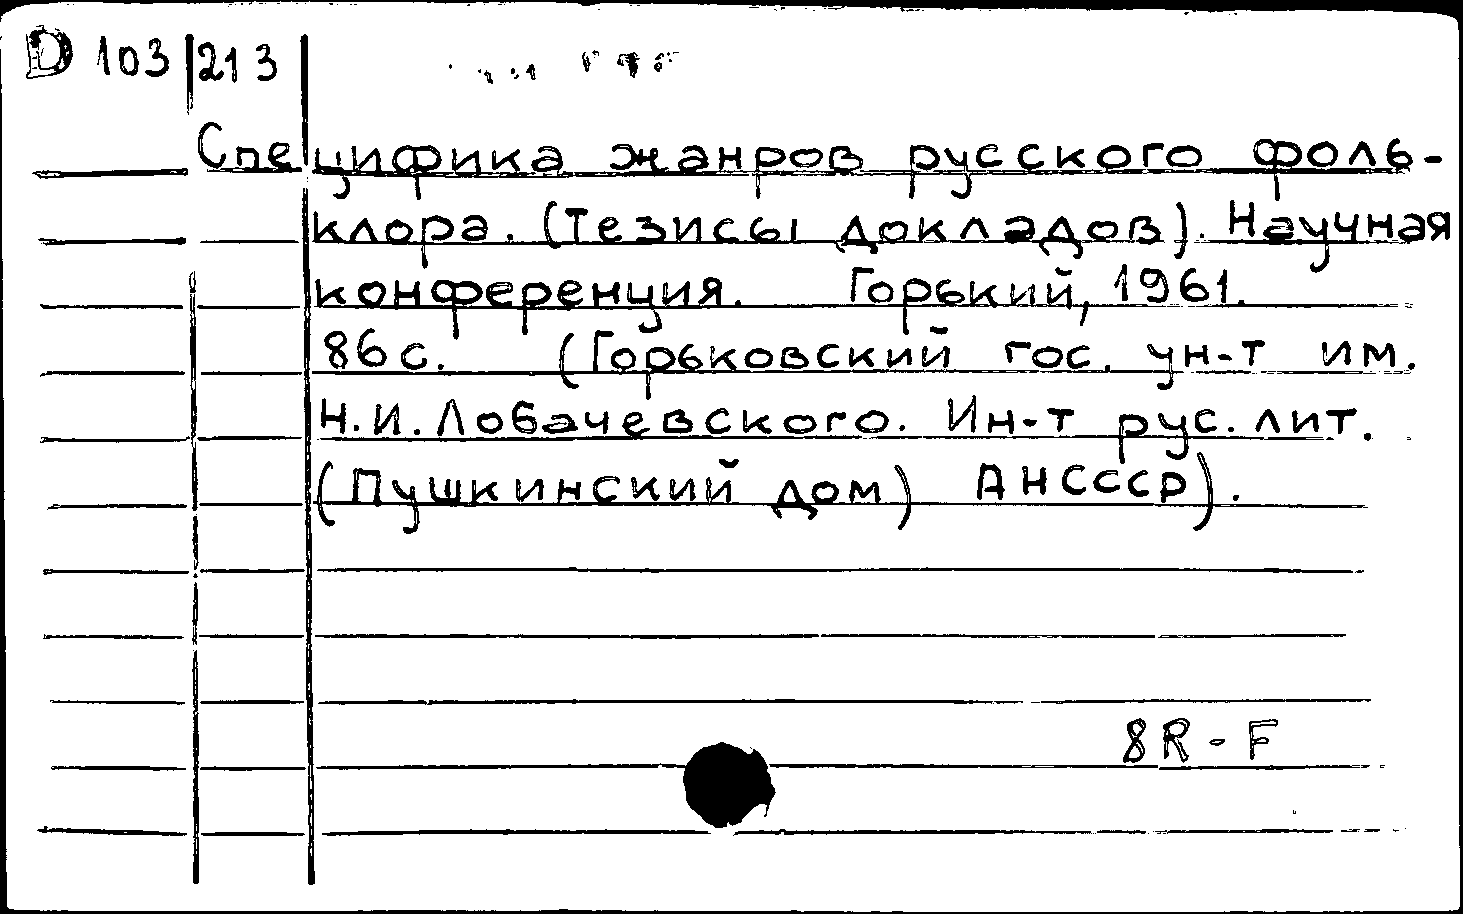 D 103/213
Специфика жанров русского фоль-
клора. (Тезисы докладов). Научная
конференция. Горький, 1961.
86 с. (Горьковский гос. ун-т им.
Н.И. Лобачевского. Ин-т рус. лит.
(Пушкинский дом) АНСССР).
8R-F